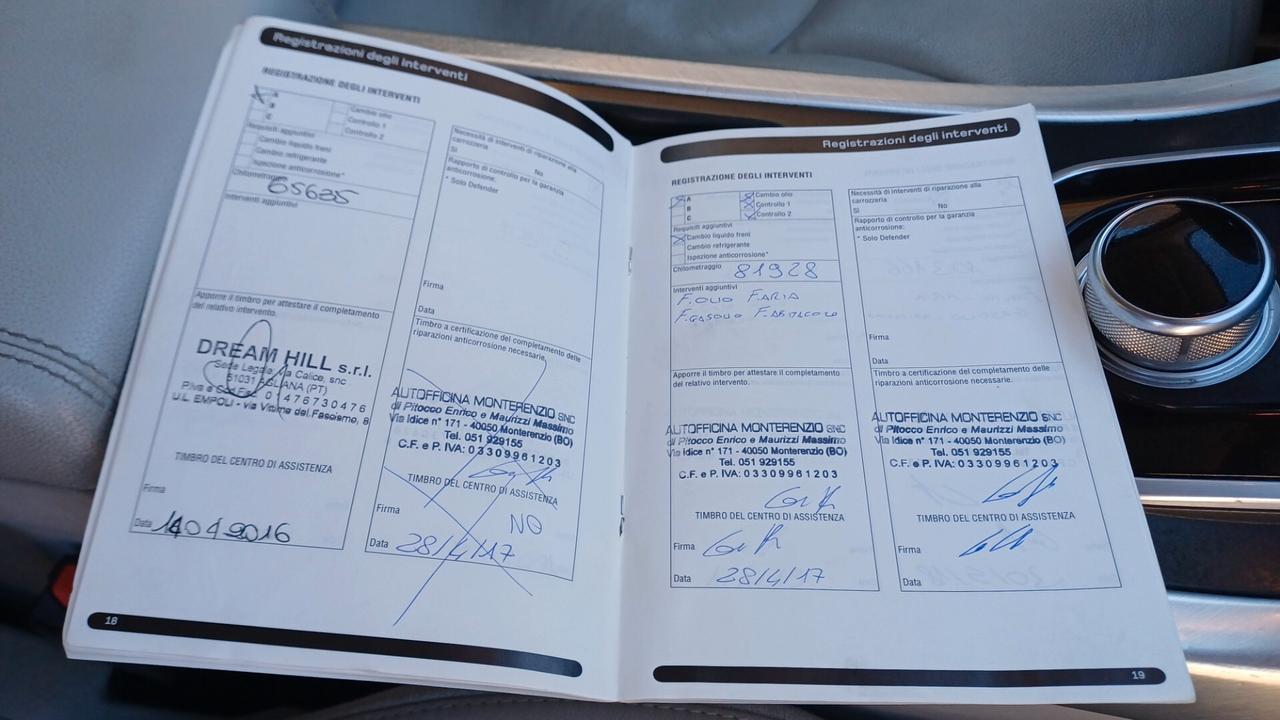 Registrazioni degli interventi
REGISTRAZIONE DEGLI INTERVENTI
A
B
C
Cambio olio
Controllo 1
Controllo 2
Requisiti aggiuntivi
Cambio liquido freni
Cambio refrigerante
Ispezione anticorrosione*
Chilometraggio 65635
Interventi aggiuntivi
Apporre il timbro per attestare il completamento
del relativo intervento.
DREAM HILL s.r.l.
Sede Legale: Via Calice, snc
51031 AGLIANA (PT)
P.Iva e Cod.Fisc. 01476730476
U.L. EMPOLI - via Vittime del Fascismo, 8
TIMBRO DEL CENTRO DI ASSISTENZA
Firma
Data 14 04 2016
Necessità di interventi di riparazione alla
carrozzeria
Sì No
Rapporto di controllo per la garanzia
anticorrosione:
* Solo Defender
Firma
Data
Timbro a certificazione del completamento delle
riparazioni anticorrosione necessarie.
AUTOFFICINA MONTERENZIO SNC
di Pitocco Enrico e Maurizzi Massimo
Via Idice n° 171 - 40050 Monterenzio (BO)
Tel. 051 929155
C.F. e P. IVA: 03309961203
TIMBRO DEL CENTRO DI ASSISTENZA
Firma
NO
Data 28/4/17
18
Registrazioni degli interventi
REGISTRAZIONE DEGLI INTERVENTI
A
B
C
Cambio olio
Controllo 1
Controllo 2
Requisiti aggiuntivi
Cambio liquido freni
Cambio refrigerante
Ispezione anticorrosione*
Chilometraggio 81928
Interventi aggiuntivi
F. OLIO F. ARIA
F. GASOLIO F. ABITACOLO
Apporre il timbro per attestare il completamento
del relativo intervento.
AUTOFFICINA MONTERENZIO SNC
di Pitocco Enrico e Maurizzi Massimo
Via Idice n° 171 - 40050 Monterenzio (BO)
Tel. 051 929155
C.F. e P. IVA: 03309961203
TIMBRO DEL CENTRO DI ASSISTENZA
Firma
Data 28/4/17
Necessità di interventi di riparazione alla
carrozzeria
Sì No
Rapporto di controllo per la garanzia
anticorrosione:
* Solo Defender
Firma
Data
Timbro a certificazione del completamento delle
riparazioni anticorrosione necessarie.
AUTOFFICINA MONTERENZIO SNC
di Pitocco Enrico e Maurizzi Massimo
Via Idice n° 171 - 40050 Monterenzio (BO)
Tel. 051 929155
C.F. e P. IVA: 03309961203
TIMBRO DEL CENTRO DI ASSISTENZA
Firma
Data
19